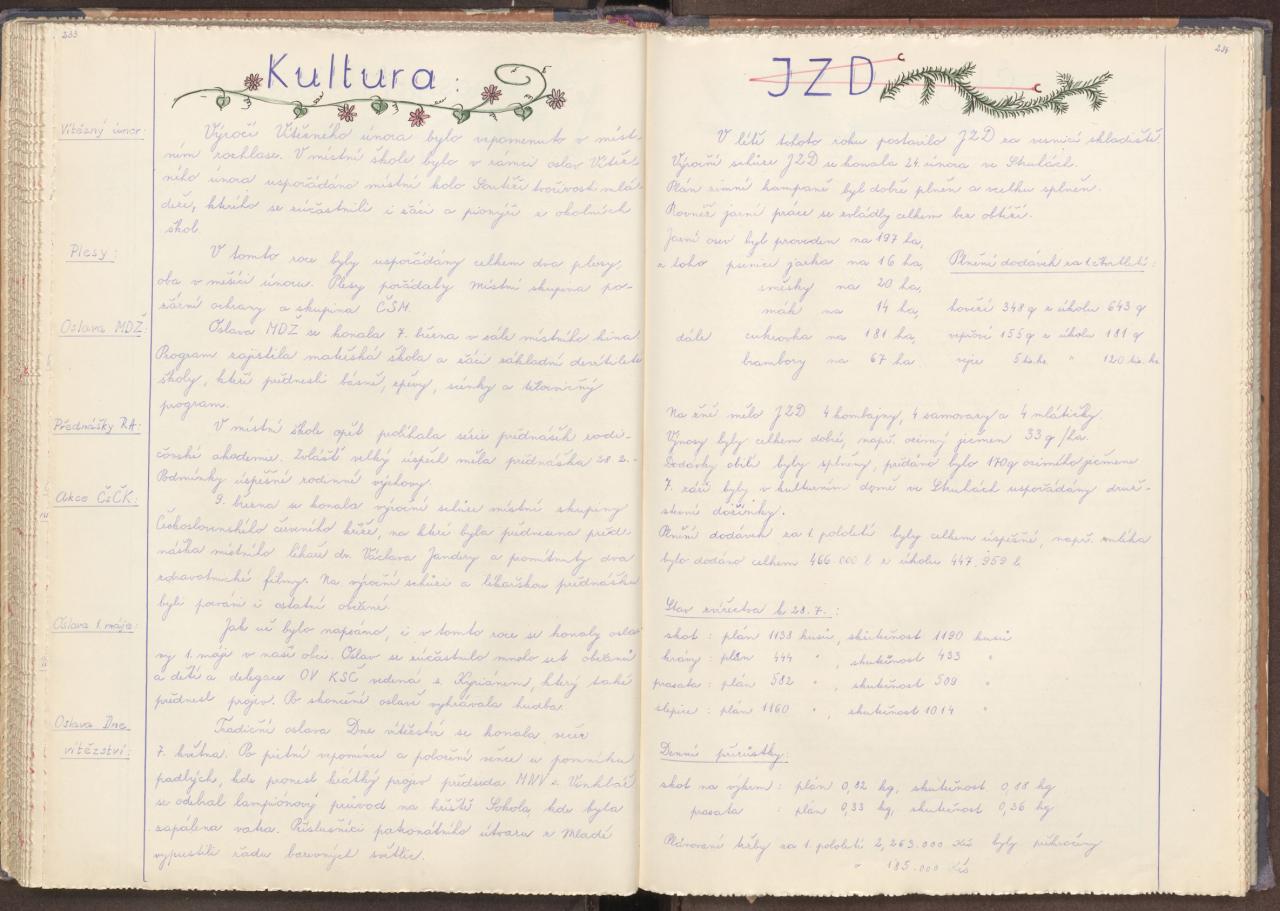 233
Kultura:
Vítězný únor:
Výročí Vítězného února bylo vzpomenuto v míst-
ním rozhlase. V místní škole bylo v rámci oslav Vítěz-
ného února uspořádáno místní kolo Soutěží tvořivosti mlá-
deže, kterého se zúčastnili i žáci a pionýři z okolních
škol.
Plesy:
V tomto roce byly uspořádány celkem dva plesy,
oba v měsíci únoru. Plesy pořádaly místní skupina po-
žární ochrany a skupina ČSM.
Oslava MDŽ:
Oslava MDŽ se konala 7. března v sále místního kina
Program zajistila mateřská škola a žáci základní devítileté
školy, kteří přednesli básně, zpěvy, scénky a tělocvičný
program.
Přednášky RA:
V místní škole opět probíhala série přednášek rodi-
čovské akademie. Zvláště velký úspěch měla přednáška 28. 2. -
Podmínky úspěšné rodinné výchovy.
Akce ČsČK:
9. března se konala výroční schůze místní skupiny
Československého červeného kříže, na které byla přednesena před-
náška místního lékaře dr. Václava Jandery a promítnuty dva
zdravotnické filmy. Na výroční schůzi a lékařskou přednášku
byli pozváni i ostatní občané.
Oslava 1. máje:
Jak už bylo napsáno, i v tomto roce se konaly osla-
vy 1. máje v naší obci. Oslav se zúčastnilo mnoho set občanů
a dětí a delegace OV KSČ vedena s. Kypriánem, který také
přednesl projev. Po skončení oslavě vyhrávala hudba.
Oslava Dne
vítězství:
Tradiční oslava Dne vítězství se konala večer
7. května. Po pietní vzpomínce a položení věnce u pomníku
padlých, kde pronesl krátký projev předseda MNV s.
se odebral lampiónový průvod na hřiště Sokola, kde byla
zapálena vatra. Příslušníci patronátního útvaru z Mladé
vypustili řadu barevných světlic.
234
JZD
V létě tohoto roku postavilo JZD za vesnicí skladiště.
Výroční schůze JZD se konala 24. února ve Struhách.
Plán zimní kampaně byl dobře plněn a vcelku splněn.
Rovněž jarní práce se zvládly celkem bez obtíží.
Jarní osev byl proveden na 197 ha,
z toho pšenice jarka na 16 ha,
směsky na 20 ha,
mák na 14 ha,
dále cukrovka na 181 ha,
brambory na 67 ha.
Plnění dodávek za 1. čtvrtletí:
hovězí 348 q z úkolu 643 q
vepřové 155 q z úkolu 181 q
vejce 5 tis. ks " 120 tis. ks
Na žně mělo JZD 4 kombajny, 4 samovazy a 4 mlátičky.
Výnosy byly celkem dobré, např. ozimný ječmen 33 q/ha.
Dodávky obilí byly splněny, přidáno bylo 170 q ozimého ječmene
7. září byly v kulturním domě ve Struhách uspořádány druž-
stevní dožínky.
Plnění dodávek za 1. pololetí byly celkem úspěšné, např. mléka
bylo dodáno celkem 466.000 l z úkolu 447.959 l.
Stav zvířectva k 28. 7.:
skot: plán 1138 kusů, skutečnost 1190 kusů
krávy: plán 444 ", skutečnost 433 "
prasata: plán 582 ", skutečnost 509 "
slepice: plán 1160 ", skutečnost 1014 "
Denní přírůstky:
skot na výkrm: plán 0,82 kg, skutečnost 0,88 kg
prasata: plán 0,33 kg, skutečnost 0,36 kg
Plánované tržby za 1. pololetí 2,263.000 Kčs byly překročeny
o 185.000 Kčs